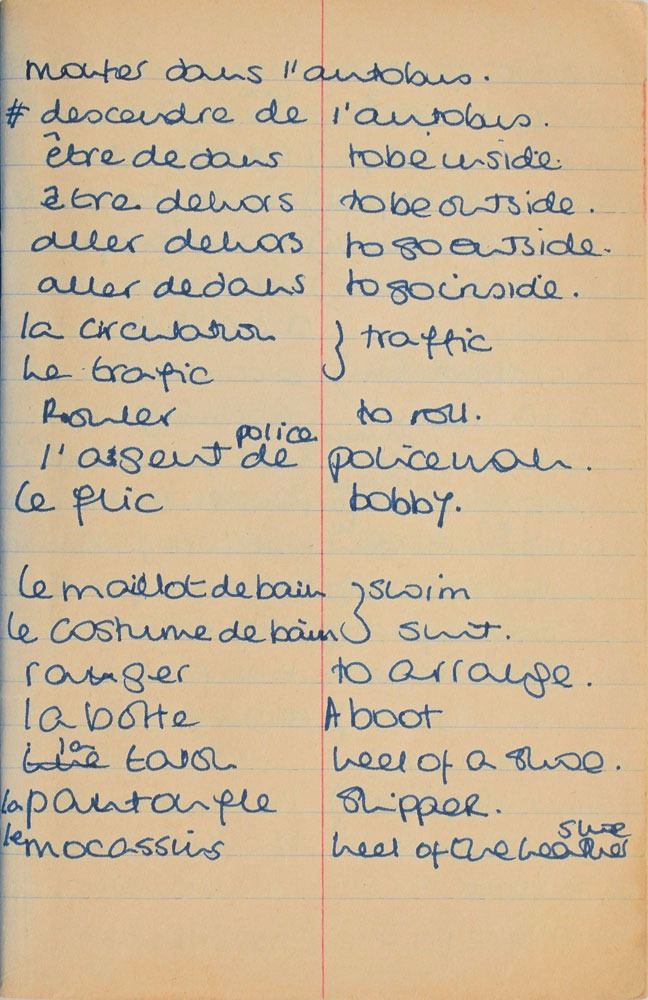 monter dans l'autobus.
# descendre de l'autobus.
être dedans to be inside.
être dehors to be outside.
aller dehors to go outside.
aller dedans to go inside.
la circulation } traffic
Le trafic
Rouler to roll.
l'agent de police policeman.
Le flic bobby.
Le maillot de bain } swim
le costume de bain suit.
ranger to arrange.
la botte A boot
la talon heel of a shoe.
la pantoufle slipper.
le mocassins heel of the leather shoe